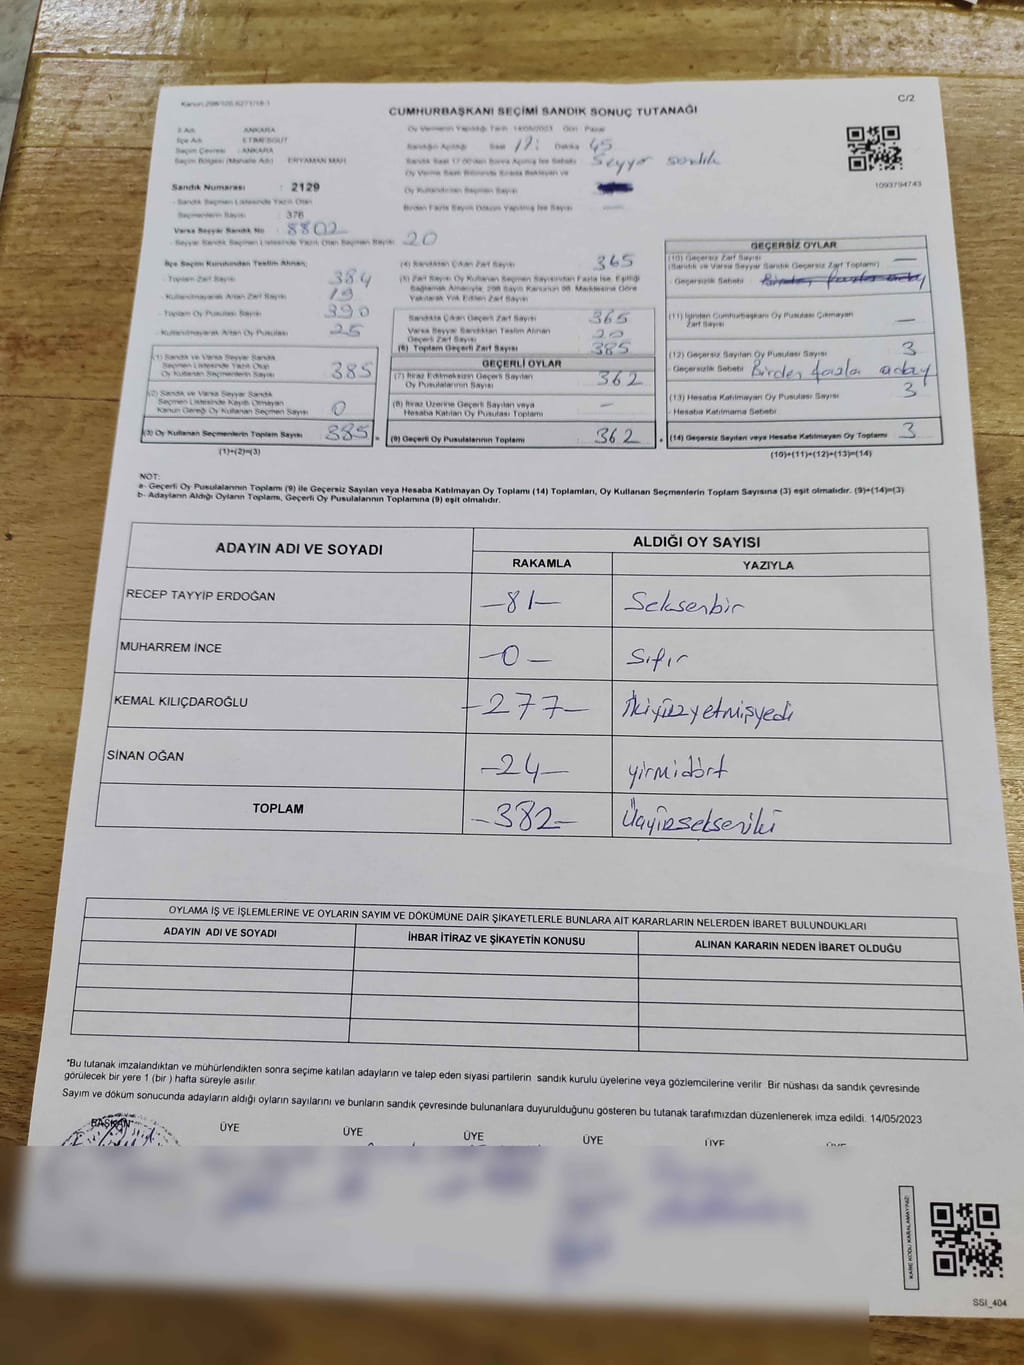 Kanun:298/105,6271/18-1
C/2
CUMHURBAŞKANI SEÇİMİ SANDIK SONUÇ TUTANAĞI
İl Adı : ANKARA
İlçe Adı : ETİMESGUT
Seçim Çevresi : ANKARA
Seçim Bölgesi (Mahalle Adı) : ERYAMAN MAH.
Sandık Numarası : 2129
- Sandık Seçmen Listesinde Yazılı Olan
Seçmenlerin Sayısı : 376
Varsa Seyyar Sandık No : 8802
- Seyyar Sandık Seçmen Listesinde Yazılı Olan Seçmen Sayısı 20
Oy Vermenin Yapıldığı Tarih 14/05/2023 Gün Pazar
Sandığın Açıldığı Saat 17: Dakika 45
Sandık Saat 17:00'den Sonra Açılmış İse Sebebi Seyyar sandık
Oy Verme Saati Bitiminde Sırada Bekleyen ve
Oy Kullandırılan Seçmen Sayısı
Birden Fazla Sayım Döküm Yapılmış İse Sayısı —
1093794743
İlçe Seçim Kurulundan Teslim Alınan;
- Toplam Zarf Sayısı 384
- Kullanılmayarak Artan Zarf Sayısı 19
- Toplam Oy Pusulası 390
- Kullanılmayarak Artan Oy Pusulası 25
(1) Sandık ve Varsa Seyyar Sandık
Seçmen Listesinde Yazılı Olan
Oy Kullanan Seçmenlerin Sayısı 385
(2) Sandık ve Varsa Seyyar Sandık
Seçmen Listesinde Kayıtlı Olmayan
Kanun Gereği Oy Kullanan Seçmen Sayısı 0
(3) Oy Kullanan Seçmenlerin Toplam Sayısı 385 =
(1)+(2)=(3)
(4) Sandıktan Çıkan Zarf Sayısı 365
(5) Zarf Sayısı Oy Kullanan Seçmen Sayısından Fazla İse, Eşitliği
Sağlamak Amacıyla, 298 Sayılı Kanunun 98. Maddesine Göre
Yakılarak Yok Edilen Zarf Sayısı
Sandıkta Çıkan Geçerli Zarf Sayısı 365
Varsa Seyyar Sandıktan Teslim Alınan
Geçerli Zarf Sayısı 20
(6) Toplam Geçerli Zarf Sayısı 385
GEÇERLİ OYLAR
(7) İtiraz Edilmeksizin Geçerli Sayılan
Oy Pusulalarının Sayısı 362
(8) İtiraz Üzerine Geçerli Sayılan veya
Hesaba Katılan Oy Pusulası Toplamı —
(9) Geçerli Oy Pusulalarının Toplamı 362 +
GEÇERSİZ OYLAR
(10) Geçersiz Zarf Sayısı
(Sandık ve Varsa Seyyar Sandık Geçersiz Zarf Toplamı) —
- Geçersizlik Sebebi Birden fazla aday
(11) İçinden Cumhurbaşkanı Oy Pusulası Çıkmayan
Zarf Sayısı —
(12) Geçersiz Sayılan Oy Pusulası Sayısı 3
- Geçersizlik Sebebi Birden fazla aday
(13) Hesaba Katılmayan Oy Pusulası Sayısı 3
- Hesaba Katılmama Sebebi
(14) Geçersiz Sayılan veya Hesaba Katılmayan Oy Toplamı 3
(10)+(11)+(12)+(13)=(14)
NOT:
a- Geçerli Oy Pusulalarının Toplamı (9) ile Geçersiz Sayılan veya Hesaba Katılmayan Oy Toplamı (14) Toplamları, Oy Kullanan Seçmenlerin Toplam Sayısına (3) eşit olmalıdır. (9)+(14)=(3)
b- Adayların Aldığı Oyların Toplamı, Geçerli Oy Pusulalarının Toplamına (9) eşit olmalıdır.
ADAYIN ADI VE SOYADI
ALDIĞI OY SAYISI
RAKAMLA YAZIYLA
RECEP TAYYİP ERDOĞAN —81— Seksenbir
MUHARREM İNCE —0— Sıfır
KEMAL KILIÇDAROĞLU —277— İkiyüzyetmişyedi
SİNAN OĞAN —24— yirmidört
TOPLAM —382— Üçyüzsekseniki
OYLAMA İŞ VE İŞLEMLERİNE VE OYLARIN SAYIM VE DÖKÜMÜNE DAİR ŞİKAYETLERLE BUNLARA AİT KARARLARIN NELERDEN İBARET BULUNDUKLARI
ADAYIN ADI VE SOYADI İHBAR İTİRAZ VE ŞİKAYETİN KONUSU ALINAN KARARIN NEDEN İBARET OLDUĞU
"Bu tutanak imzalandıktan ve mühürlendikten sonra seçime katılan adayların ve talep eden siyasi partilerin sandık kurulu üyelerine veya gözlemcilerine verilir. Bir nüshası da sandık çevresinde
görülecek bir yere 1 (bir ) hafta süreyle asılır.
Sayım ve döküm sonucunda adayların aldığı oyların sayılarını ve bunların sandık çevresinde bulunanlara duyurulduğunu gösteren bu tutanak tarafımızdan düzenlenerek imza edildi. 14/05/2023
BAŞKAN ÜYE ÜYE ÜYE ÜYE ÜYE ÜYE
KARE KODU KARALAMAYINIZ!
SSI_404